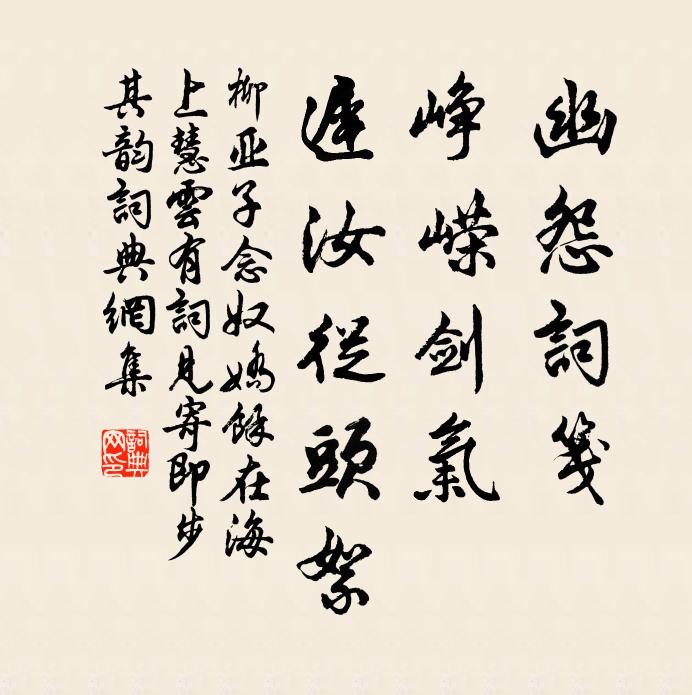 幽怨詞箋
崢嶸劍氣
遲汝從頭絮
柳亚子念奴嬌餘在海
上慧雲有詞見寄即步
其韵詞典網集
詞典
网印